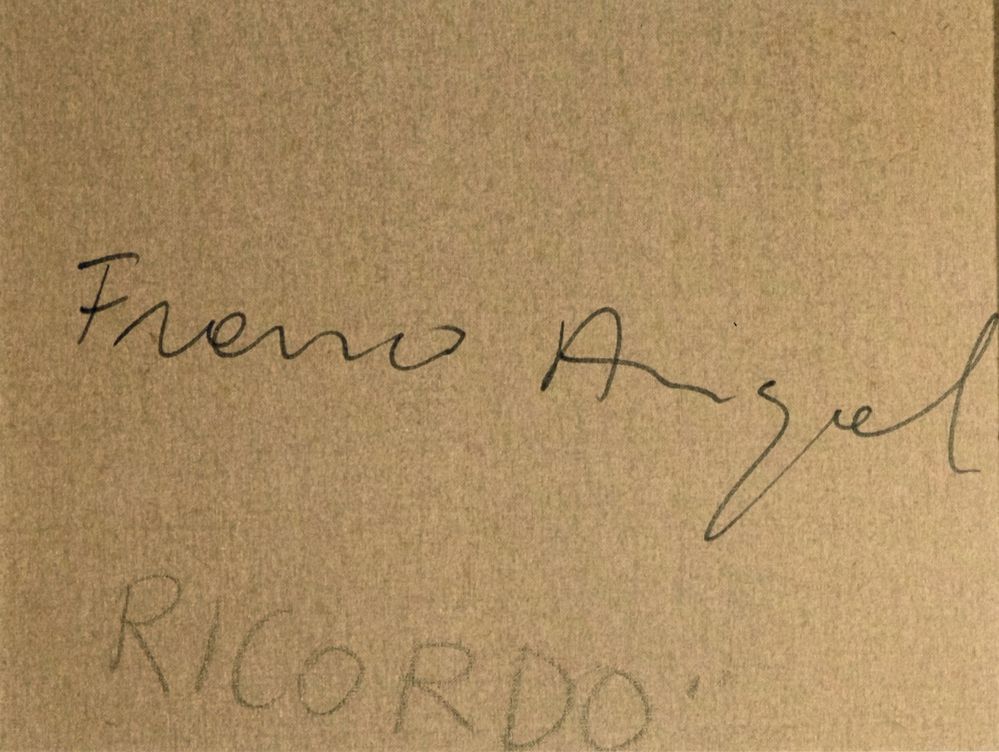 Franco Angel
RICORDO"